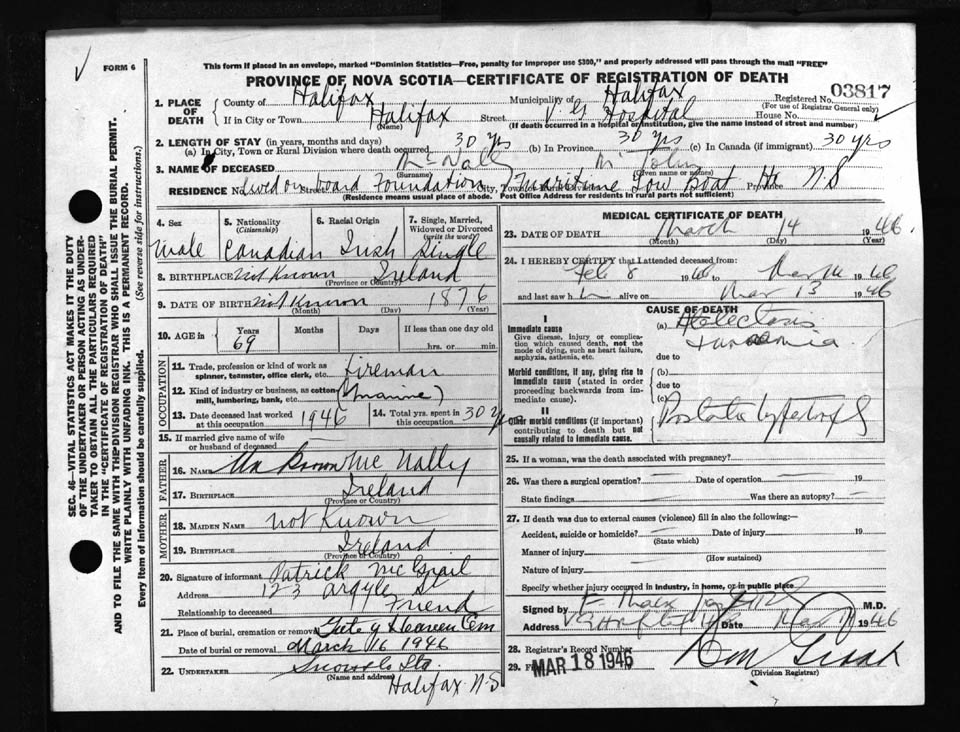 FORM 6
This form if placed in an envelope, marked "Dominion Statistics—Free, penalty for improper use $300," and properly addressed will pass through the mail "FREE"
PROVINCE OF NOVA SCOTIA—CERTIFICATE OF REGISTRATION OF DEATH
03817
1. PLACE OF DEATH County of Halifax Municipality of Halifax Registered No. (For use of Registrar General only)
If in City or Town Halifax (Name) Street V. G. Hospital House No.
(If death occurred in a hospital or institution, give the name instead of street and number)
2. LENGTH OF STAY (in years, months and days)
(a) In City, Town or Rural Division where death occurred 30 yrs (b) In Province 30 yrs (c) In Canada (if immigrant) 30 yrs
3. NAME OF DECEASED McNally (Surname) John (Given name or names)
RESIDENCE No. Lived on board Foundation Street Maritime Tow Boat City, Town Province N.S
(Residence means usual place of abode. Post Office Address for residents in rural parts not sufficient)
4. Sex Male
5. Nationality (Citizenship) Canadian
6. Racial Origin Irish
7. Single, Married, Widowed or Divorced (write the word) Single
8. BIRTHPLACE Not Known Ireland (Province or Country)
9. DATE OF BIRTH Not Known 1876 (Month) (Day) (Year)
10. AGE in Years 69 Months Days If less than one day old hrs. or min.
OCCUPATION
11. Trade, profession or kind of work as spinner, teamster, office clerk, etc. Fireman
12. Kind of industry or business, as cotton mill, lumbering, bank, etc. (Marine)
13. Date deceased last worked at this occupation 1945 14. Total yrs. spent in this occupation 30 yrs
15. If married give name of wife or husband of deceased
FATHER
16. NAME Unknown McNally
17. BIRTHPLACE Ireland (Province or Country)
MOTHER
18. MAIDEN NAME Not Known
19. BIRTHPLACE Ireland (Province or Country)
20. Signature of informant Patrick McGrail
Address 123 Argyle St
Relationship to deceased Friend
21. Place of burial, cremation or removal Gate of Heaven Cem
Date of burial or removal March 16 1946
22. UNDERTAKER Snow & Co
(Name and address) Halifax N.S
MEDICAL CERTIFICATE OF DEATH
23. DATE OF DEATH March 14 1946
(Month) (Day) (Year)
24. I HEREBY CERTIFY that I attended deceased from:
Feb 8 1946 to Mar 14 1946
and last saw h alive on Mar 13 1946
CAUSE OF DEATH
I
Immediate cause
Give disease, injury, or complication which caused death, not the mode of dying, such as heart failure, asphyxia, asthenia, etc.
(a) Atelectasis
due to
Morbid conditions, if any, giving rise to immediate cause (stated in order proceeding backwards from immediate cause).
(b)
due to
(c)
II
Other morbid conditions (if important) contributing to death but not causally related to immediate cause.
Prostatic hypertrophy
25. If a woman, was the death associated with pregnancy?
26. Was there a surgical operation? Date of operation 19
State findings Was there an autopsy?
27. If death was due to external causes (violence) fill in also the following:—
Accident, suicide or homicide? (State which) Date of injury 19
Manner of injury (How sustained)
Nature of injury
Specify whether injury occurred in industry, in home, or in public place
Signed by M.D.
Address Date Mar 1946
28. Registrar's Record Number
29. MAR 18 1946
(Division Registrar)
SEC. 46—VITAL STATISTICS ACT MAKES IT THE DUTY
OF THE UNDERTAKER OR PERSON ACTING AS UNDERTAKER TO OBTAIN ALL THE PARTICULARS REQUIRED
IN THE "CERTIFICATE OF REGISTRATION OF DEATH"
AND TO FILE THE SAME WITH THE DIVISION REGISTRAR WHO SHALL ISSUE THE BURIAL PERMIT.
WRITE PLAINLY WITH UNFADING INK. THIS IS A PERMANENT RECORD.
Every item of information should be carefully supplied. (See reverse side for instructions.)